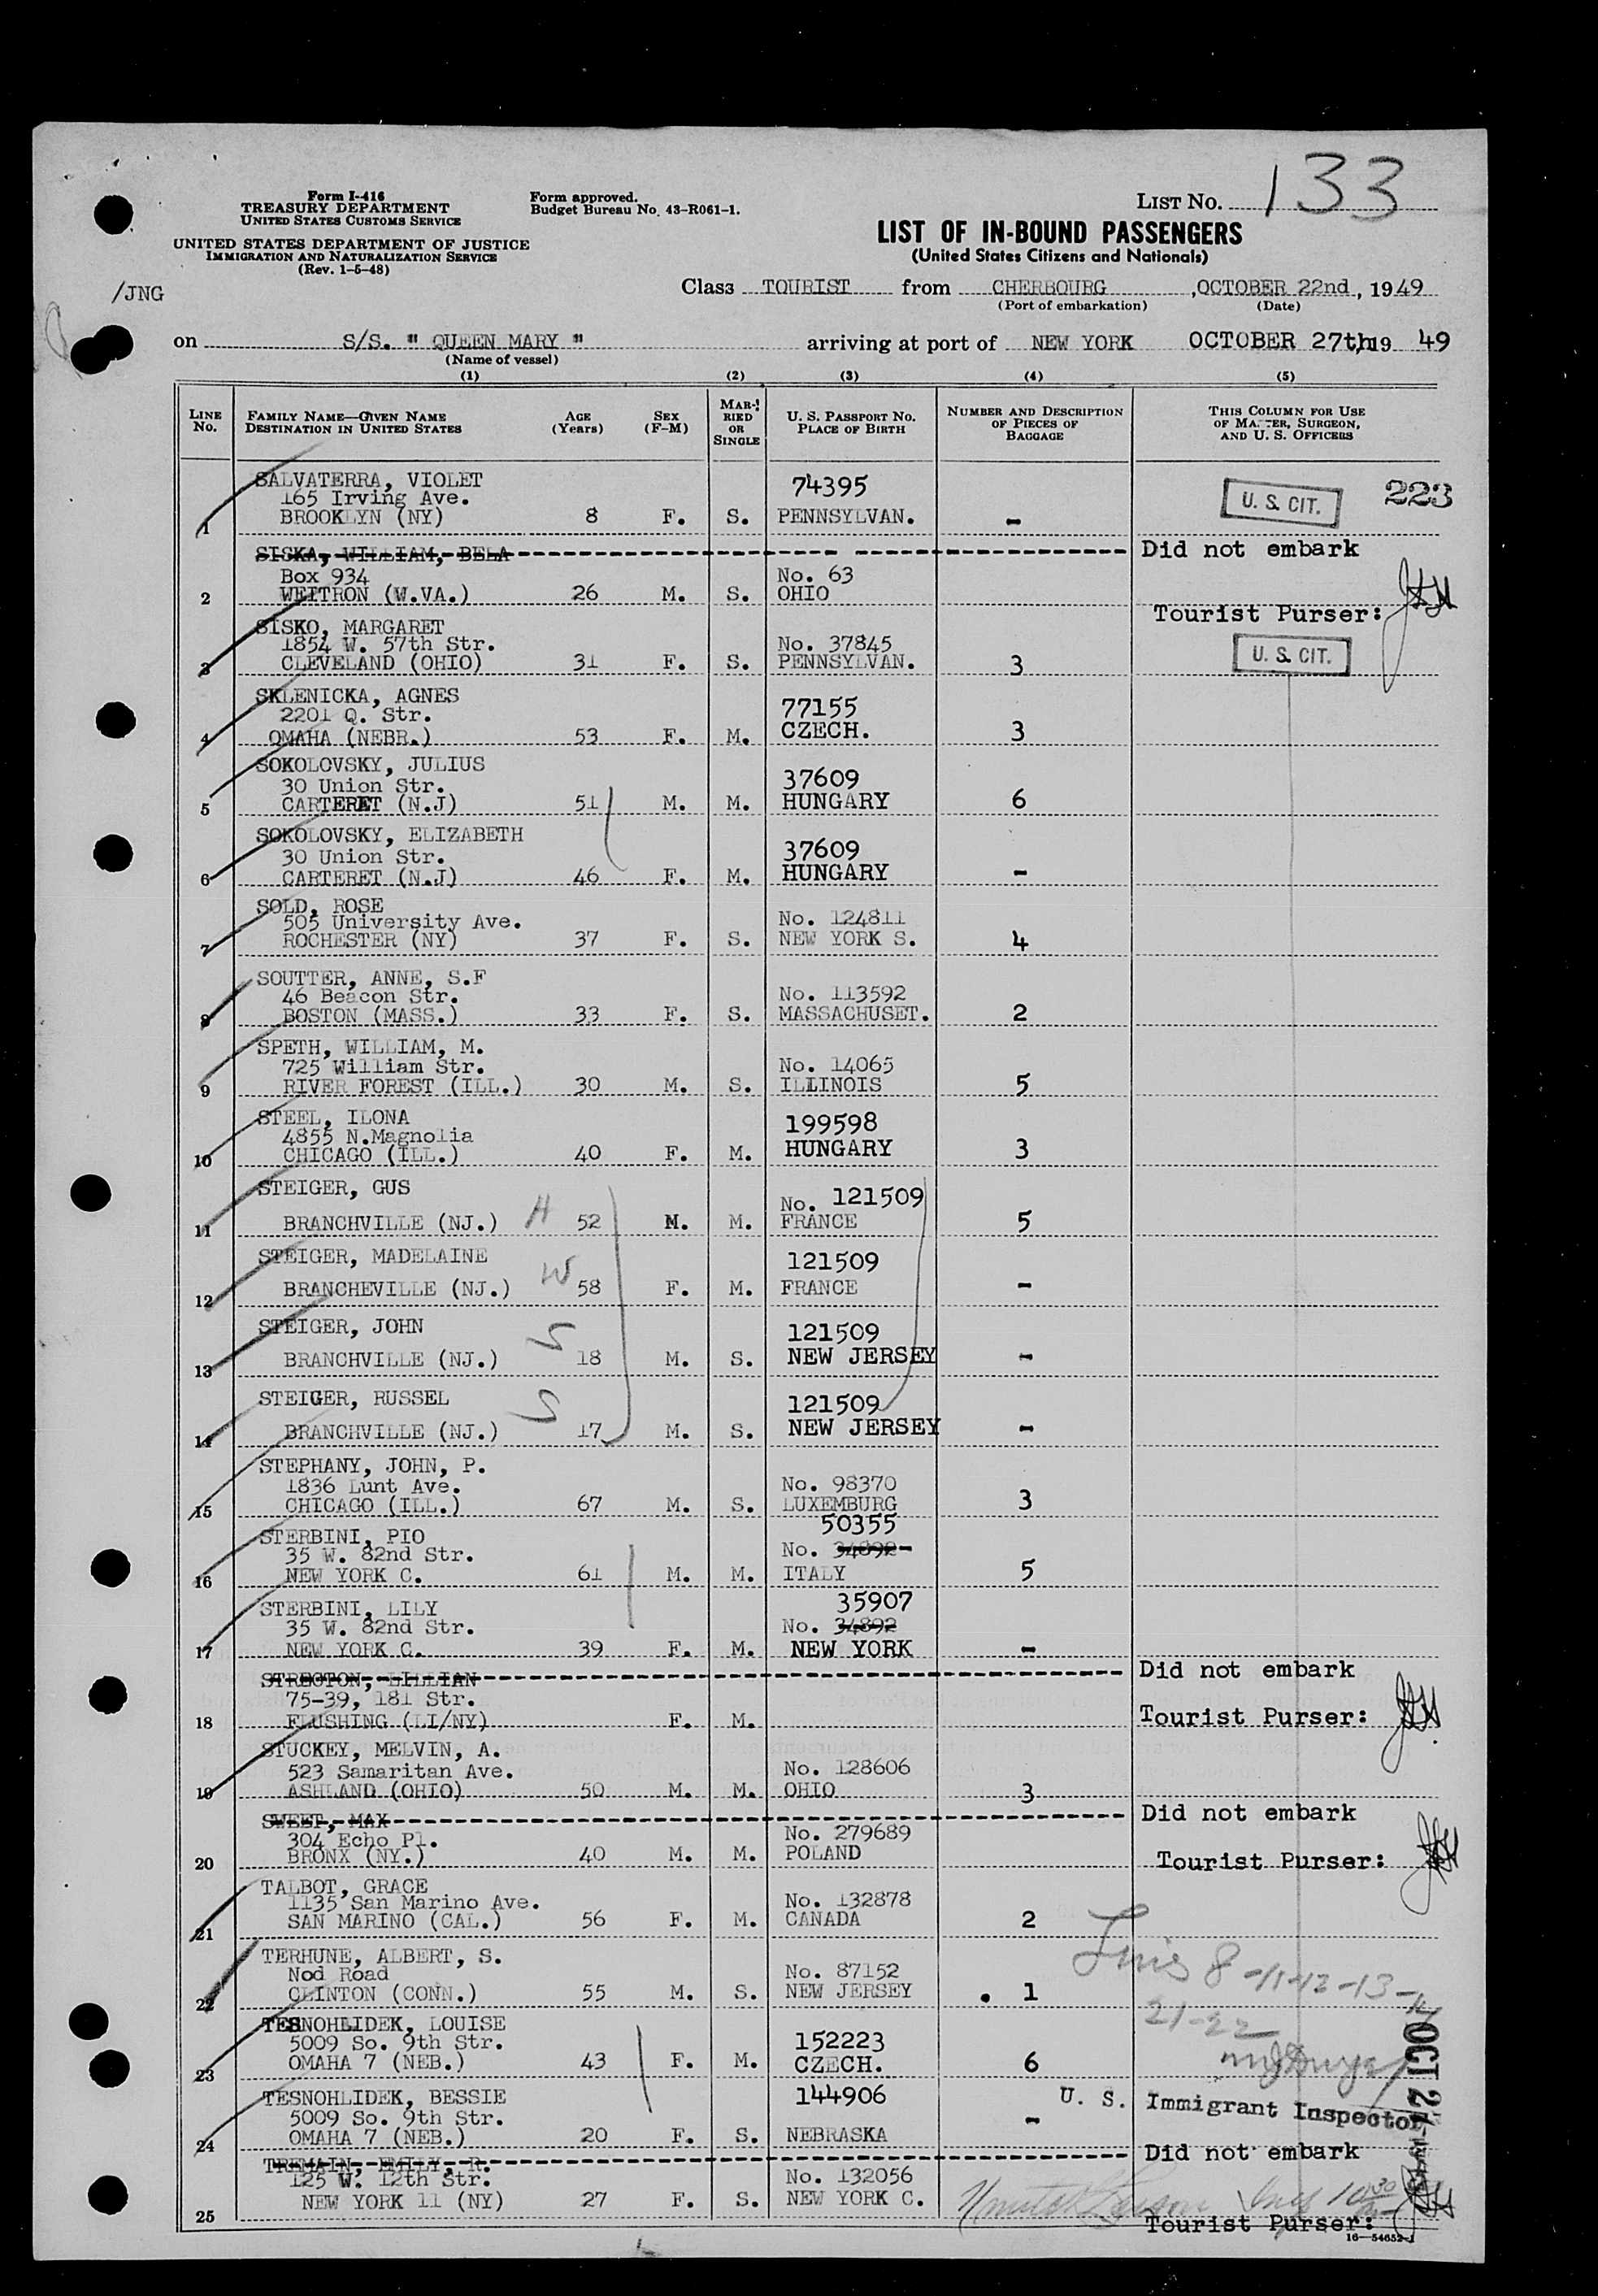 Form I-416
TREASURY DEPARTMENT
UNITED STATES CUSTOMS SERVICE
UNITED STATES DEPARTMENT OF JUSTICE
IMMIGRATION AND NATURALIZATION SERVICE
(Rev. 1-5-48)
Form approved.
Budget Bureau No. 43-R061-1.
LIST NO. 133
LIST OF IN-BOUND PASSENGERS
(United States Citizens and Nationals)
/JNG
Class TOURIST from CHERBOURG ,OCTOBER 22nd, 1949
(Port of embarkation) (Date)
on S/S. " QUEEN MARY " arriving at port of NEW YORK OCTOBER 27th, 19 49
(Name of vessel)
(1) (2) (3) (4) (5)
LINE NO. FAMILY NAME—GIVEN NAME DESTINATION IN UNITED STATES AGE (Years) SEX (F-M) MARRIED OR SINGLE U. S. PASSPORT NO. PLACE OF BIRTH NUMBER AND DESCRIPTION OF PIECES OF BAGGAGE THIS COLUMN FOR USE OF MASTER, SURGEON, AND U. S. OFFICERS
SALVATERRA, VIOLET 74395 U. S. CIT. 223
165 Irving Ave.
1 BROOKLYN (NY) 8 F. S. PENNSYLVAN. -
SISKA, WILLIAM, BELA Did not embark
Box 934 No. 63
2 WEITRON (W.VA.) 26 M. S. OHIO Tourist Purser:
SISKO, MARGARET
1854 W. 57th Str. No. 37845 U. S. CIT.
3 CLEVELAND (OHIO) 31 F. S. PENNSYLVAN. 3
SKLENICKA, AGNES
2201 Q. Str. 77155
4 OMAHA (NEBR.) 53 F. M. CZECH. 3
SOKOLOVSKY, JULIUS
30 Union Str. 37609
5 CARTERET (N.J) 51 M. M. HUNGARY 6
SOKOLOVSKY, ELIZABETH
30 Union Str. 37609
6 CARTERET (N.J) 46 F. M. HUNGARY -
SOLD, ROSE
505 University Ave. No. 124811
7 ROCHESTER (NY) 37 F. S. NEW YORK S. 4
SOUTTER, ANNE, S.F
46 Beacon Str. No. 113592
8 BOSTON (MASS.) 33 F. S. MASSACHUSET. 2
SPETH, WILLIAM, M.
725 William Str. No. 14065
9 RIVER FOREST (ILL.) 30 M. S. ILLINOIS 5
STEEL, ILONA
4855 N.Magnolia 199598
10 CHICAGO (ILL.) 40 F. M. HUNGARY 3
STEIGER, GUS No. 121509
11 BRANCHVILLE (NJ.) H 52 M. M. FRANCE 5
STEIGER, MADELAINE 121509
12 BRANCHEVILLE (NJ.) W 58 F. M. FRANCE -
STEIGER, JOHN 121509
13 BRANCHVILLE (NJ.) S 18 M. S. NEW JERSEY -
STEIGER, RUSSEL 121509
14 BRANCHVILLE (NJ.) S 17 M. S. NEW JERSEY -
STEPHANY, JOHN, P.
1836 Lunt Ave. No. 98370
15 CHICAGO (ILL.) 67 M. S. LUXEMBURG 3
STERBINI, PIO 50355
35 W. 82nd Str. No. 34892
16 NEW YORK C. 61 M. M. ITALY 5
STERBINI, LILY 35907
35 W. 82nd Str. No. 34892
17 NEW YORK C. 39 F. M. NEW YORK -
STRECTON, LILLIAN Did not embark
75-39, 181 Str.
18 FLUSHING (LI/NY) F. M. Tourist Purser:
STUCKEY, MELVIN, A.
523 Samaritan Ave. No. 128606
19 ASHLAND (OHIO) 50 M. M. OHIO 3
SWEET, MAX Did not embark
304 Echo Pl. No. 279689
20 BRONX (NY.) 40 M. M. POLAND Tourist Purser:
TALBOT, GRACE
1135 San Marino Ave. No. 132878
21 SAN MARINO (CAL.) 56 F. M. CANADA 2
TERHUNE, ALBERT, S. 8-11-12-13-14
Nod Road No. 87152
22 CLINTON (CONN.) 55 M. S. NEW JERSEY . 1
21-22
TESNOHLIDEK, LOUISE
5009 So. 9th Str. 152223
23 OMAHA 7 (NEB.) 43 F. M. CZECH. 6
TESNOHLIDEK, BESSIE 144906 U. S. Immigrant Inspector
5009 So. 9th Str.
24 OMAHA 7 (NEB.) 20 F. S. NEBRASKA -
OCT 27 1949
TREMAIN, EMILY, R. Did not embark
125 W. 12th Str. No. 132056
25 NEW YORK 11 (NY) 27 F. S. NEW YORK C.
Tourist Purser:
16—54652-1